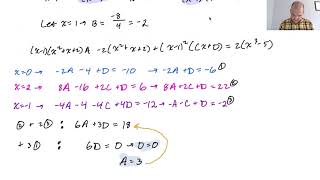 Let x=1 → B = -8/4 = -2
(x-1)(x²+x+2)A - 2(x²+x+2) + (x-1)²(Cx+D) = 2(x³-5)
x=0 → -2A - 4 + D = -10 → -2A + D = -6 ①
x=2 → 8A - 16 + 2C + D = 6 → 8A + 2C + D = 22 ②
x=-1 → -4A - 4 - 4C + 4D = -12 → -A - C + D = -2 ③
② + 2③ : 6A + 3D = 18
+ 3① : 6D = 0 → D=0
A = 3